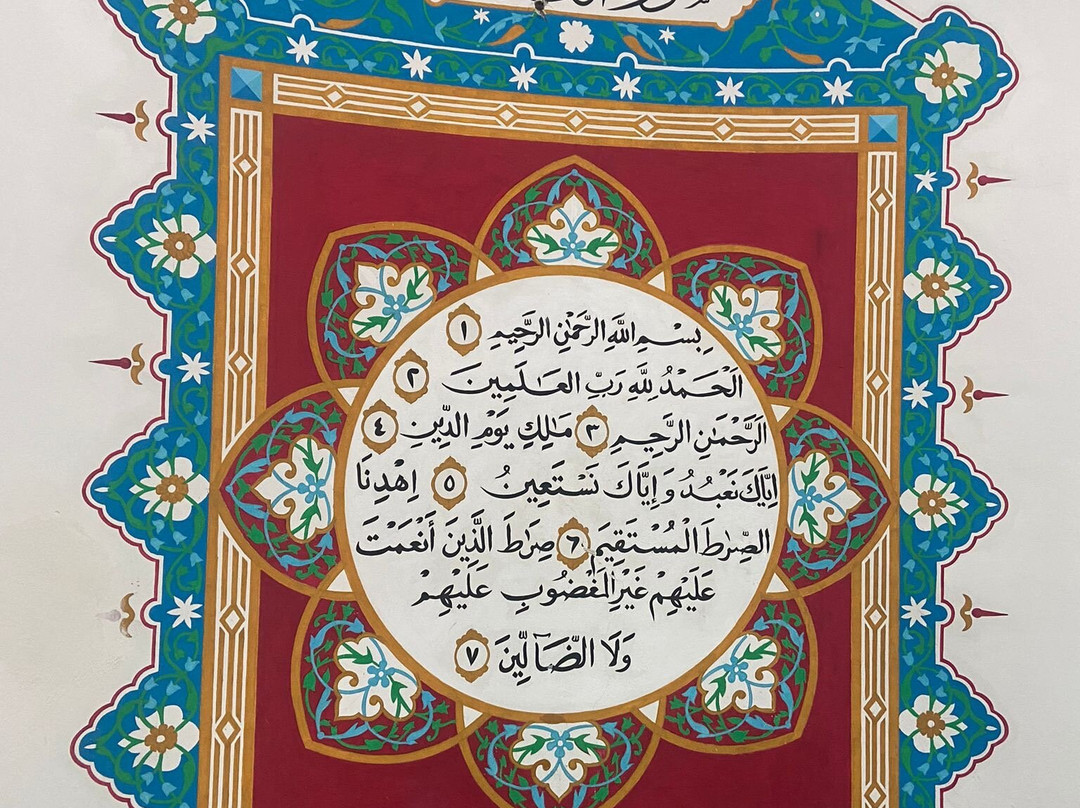 بِسْمِ اللَّهِ الرَّحْمَٰنِ الرَّحِيمِ ١
اَلْحَمْدُ لِلَّهِ رَبِّ الْعَـٰلَمِينَ ٢
اَلرَّحْمَٰنِ الرَّحِيمِ ٣ مَـٰلِكِ يَوْمِ الدِّينِ ٤
اِيَّاكَ نَعْبُدُ وَ اِيَّاكَ نَسْتَعِينُ ٥ اِهْدِنَا
الصِّرٰطَ الْمُسْتَقِيمَ ٦ صِرٰطَ الَّذِينَ أَنْعَمْتَ
عَلَيْهِمْ غَيْرِ الْمَغْضُوبِ عَلَيْهِمْ
وَلَا الضَّآلِّينَ ٧